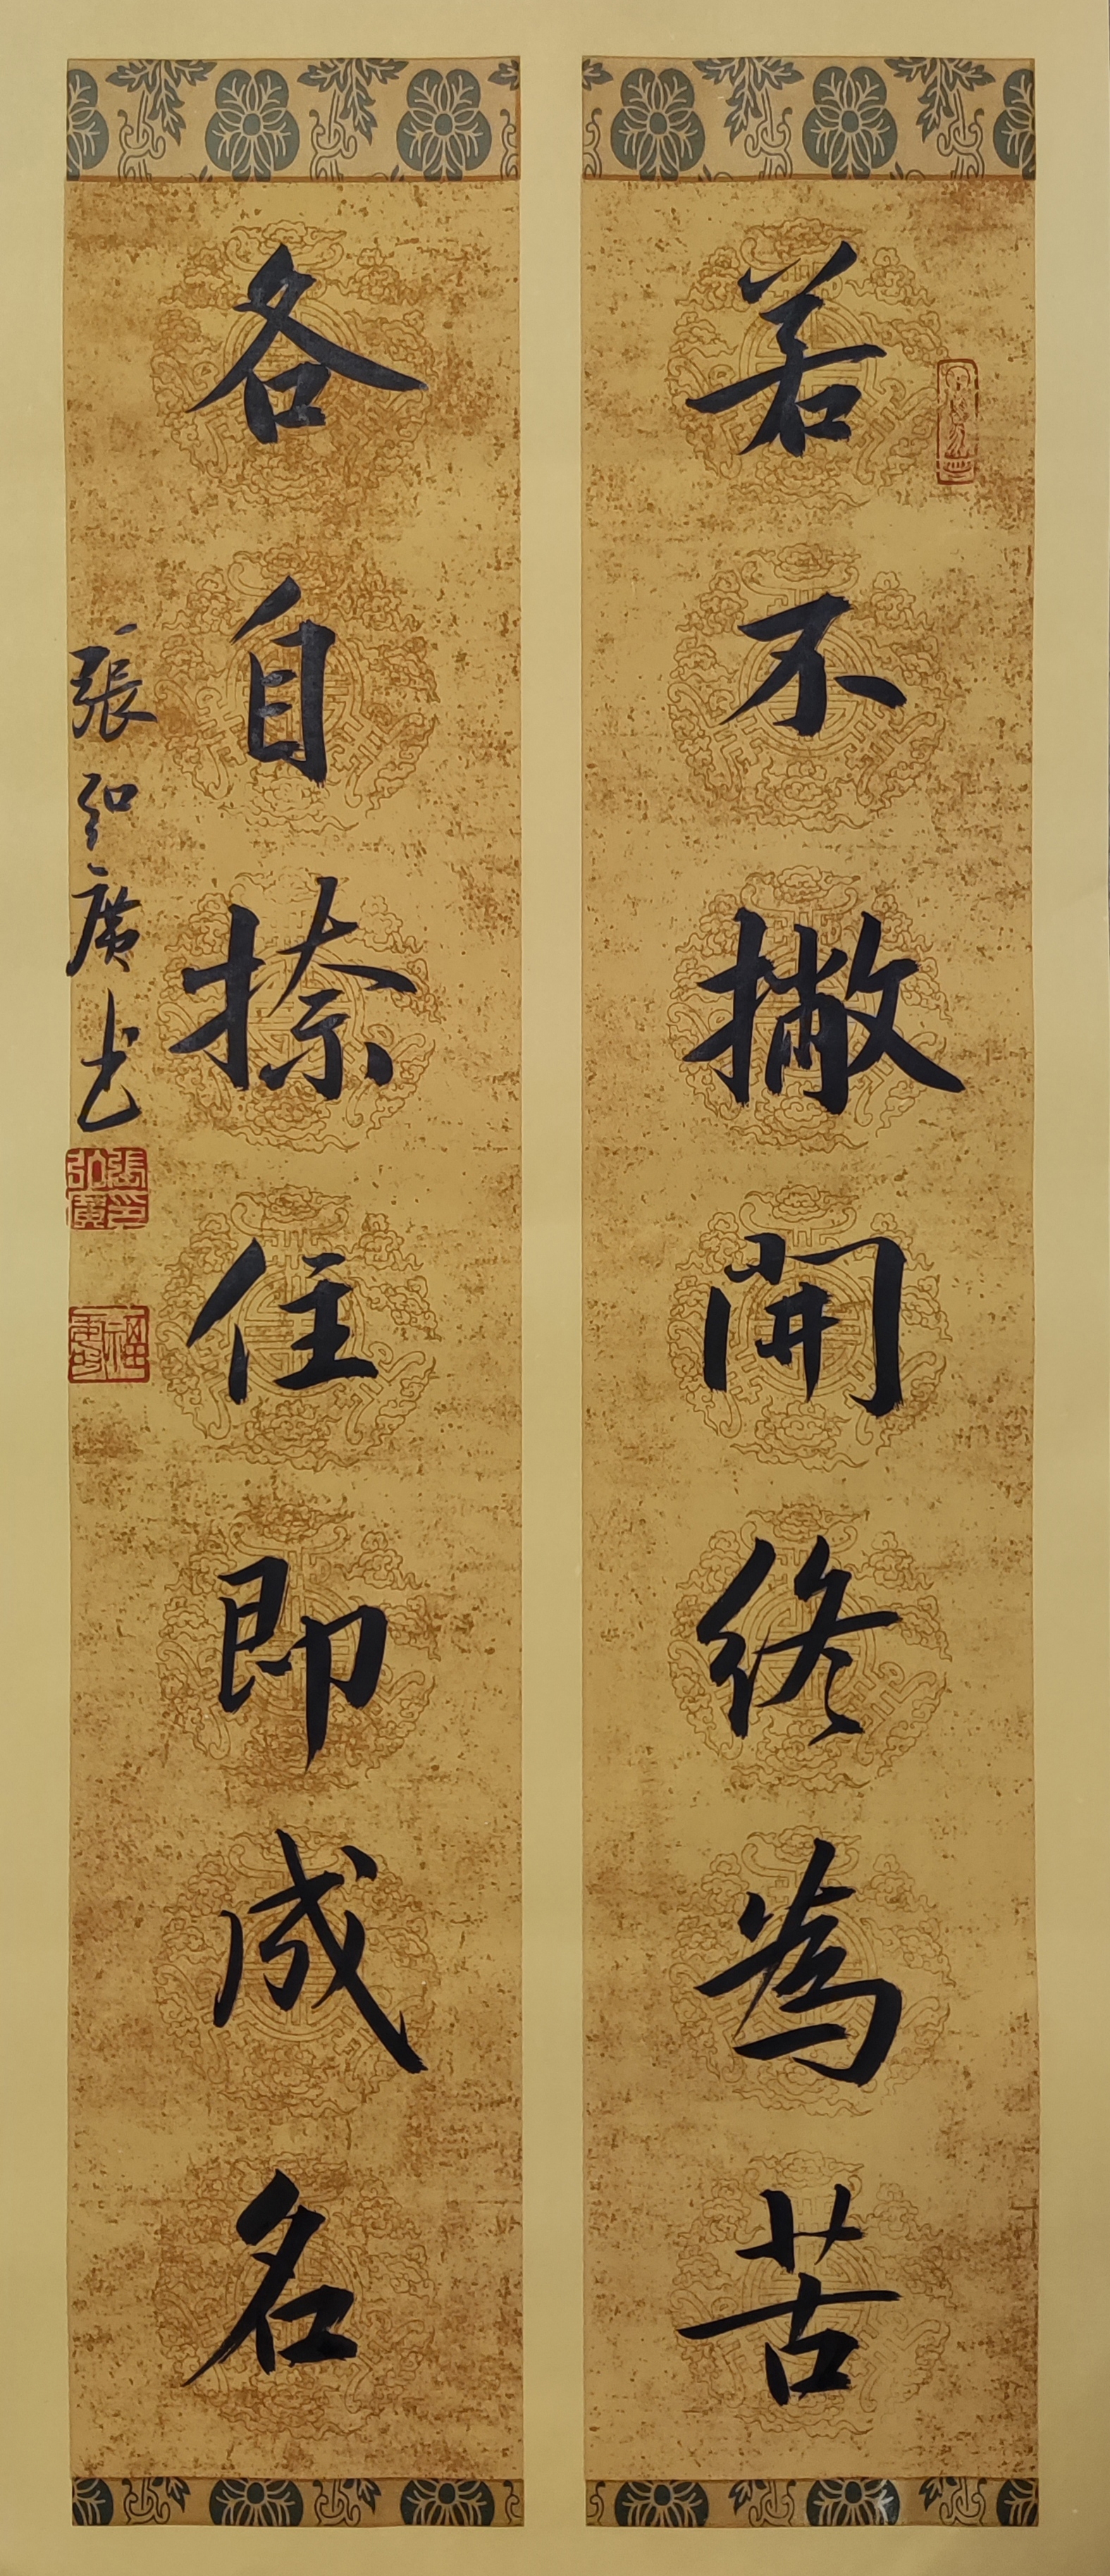 若不撇開終為苦
各自捺住即成名
張弘廣书
張弘廣印